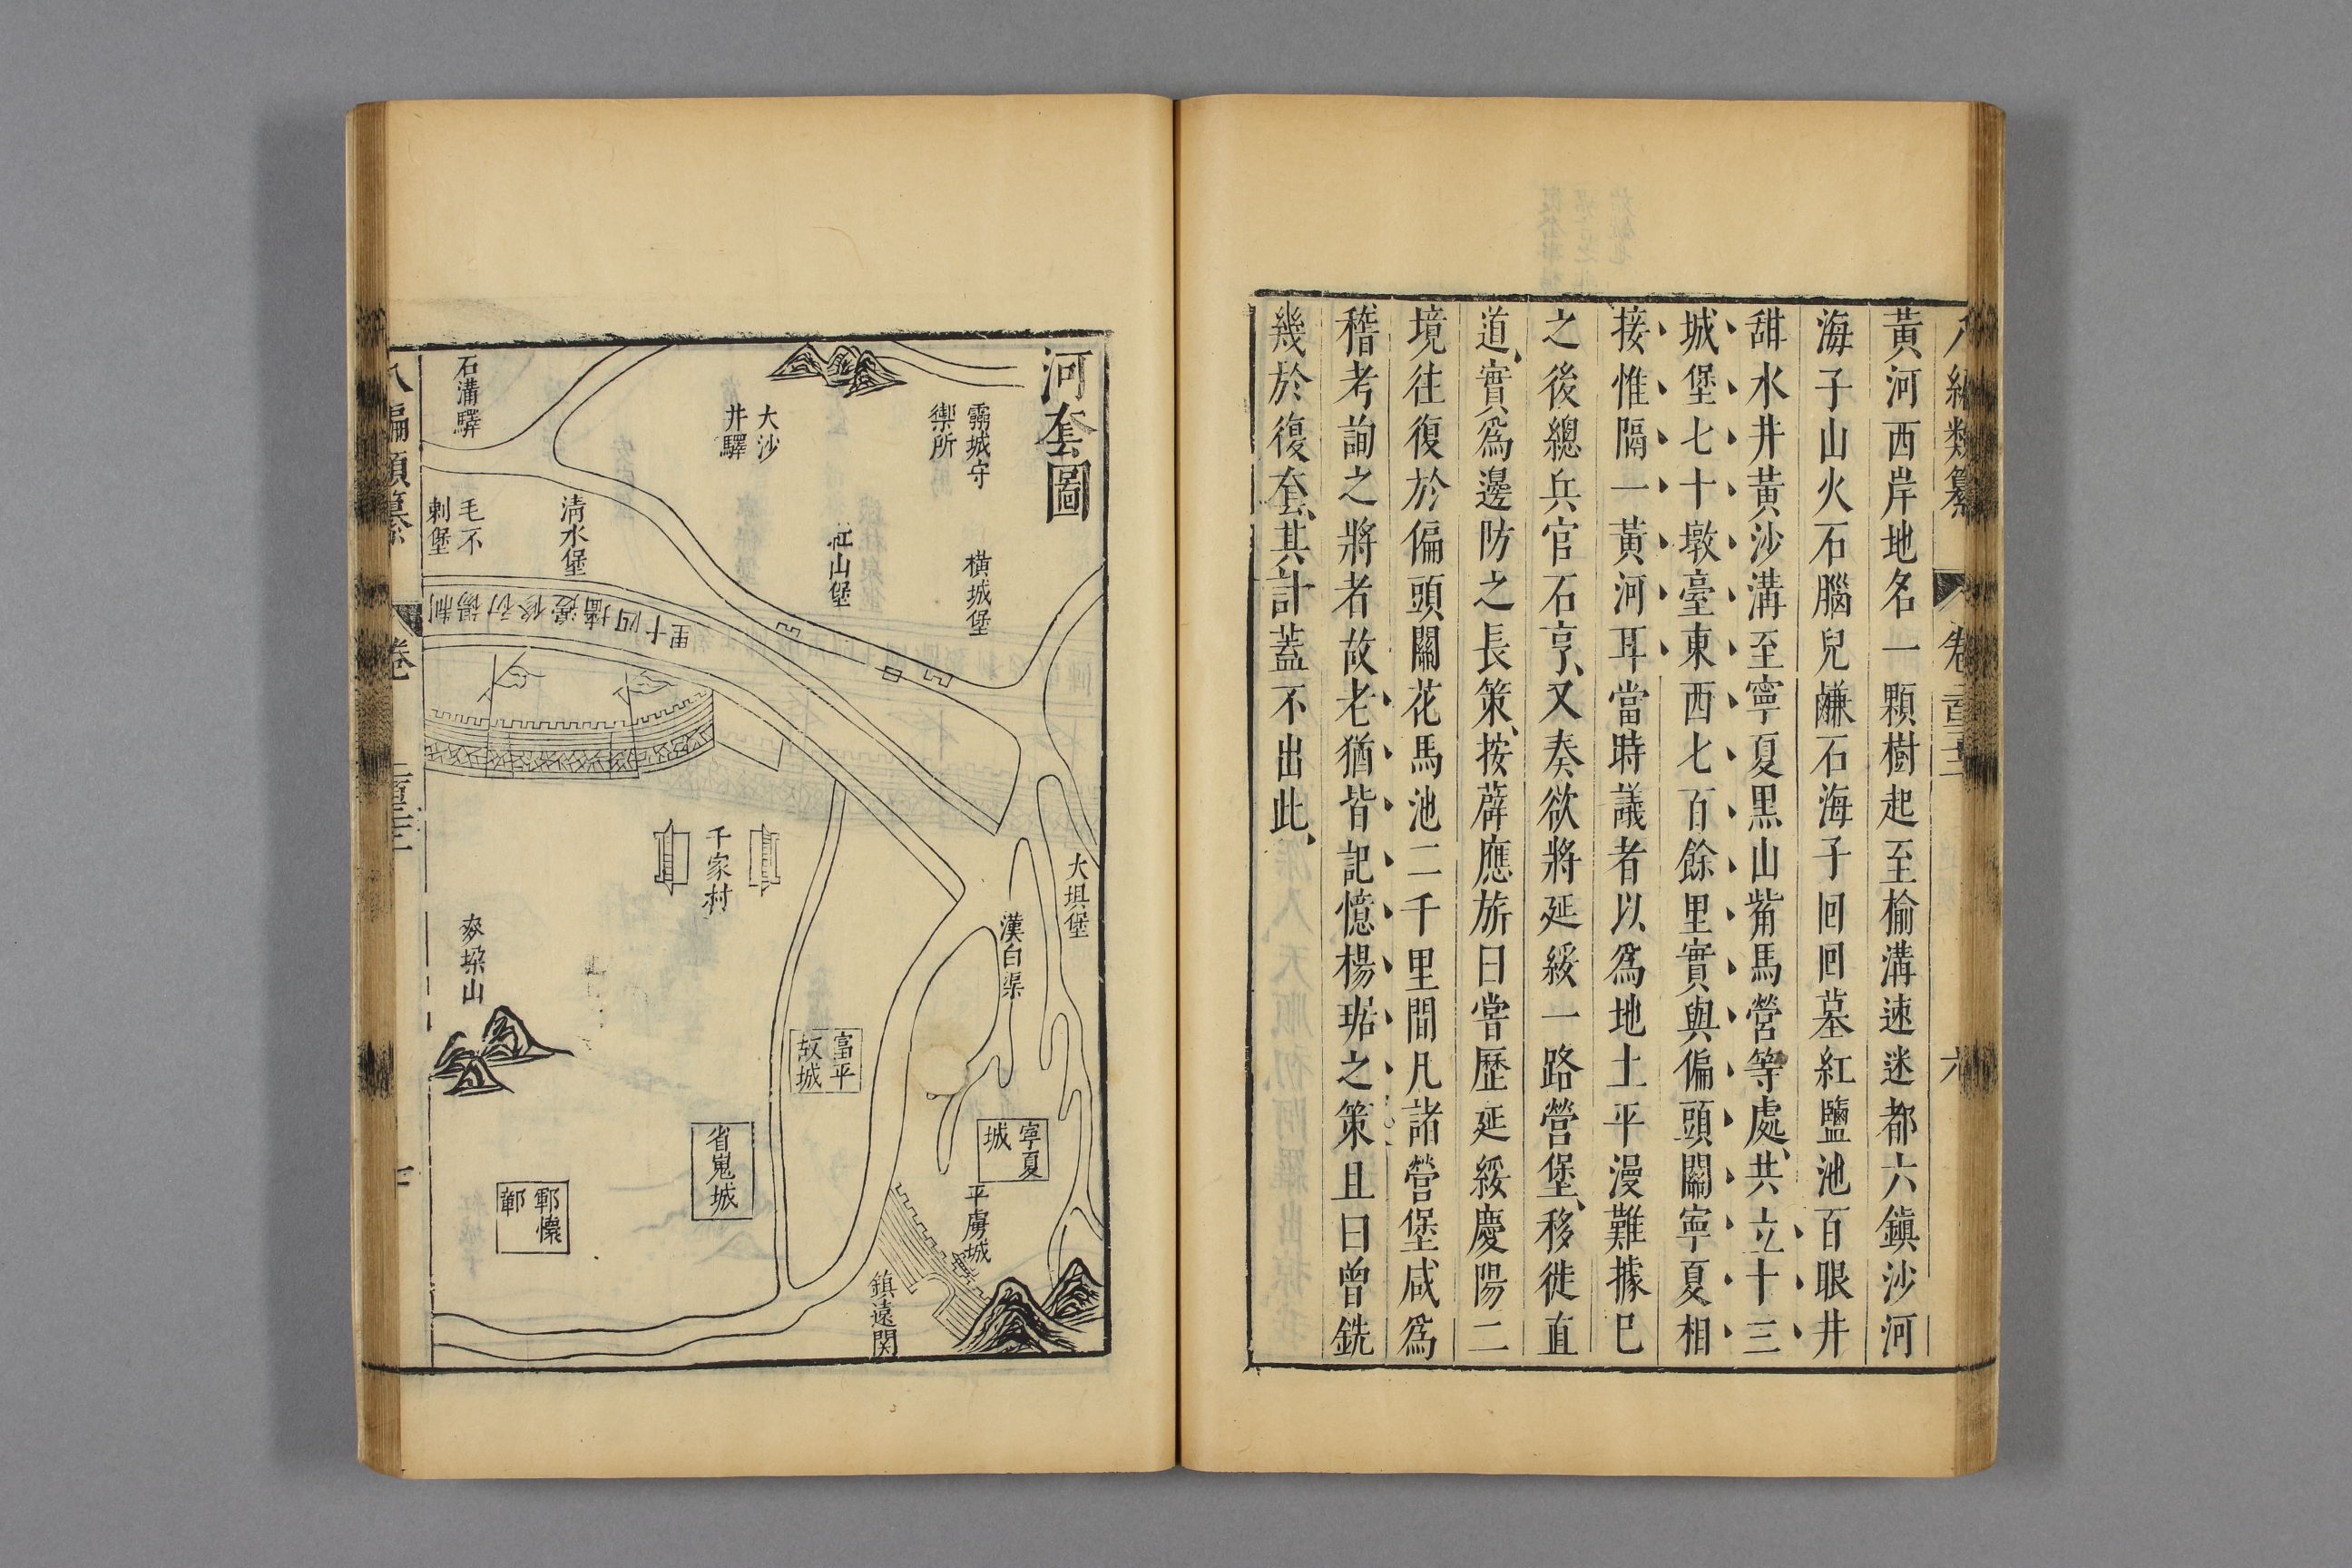 黃河西岸地名一顆樹起至榆溝速迷都六鎮沙河
海子山火石腦兒鹻石海子回回墓紅鹽池百眼井
甜水井黃沙溝至寧夏黑山觜馬營等處、共立十三
城堡七十墩臺東西七百餘里實與偏頭關寧夏相
接惟隔一黃河耳當時議者以爲地土平漫難據已
之後總兵官石亨、又奏欲將延綏一路營堡、移徙直
道、實爲邊防之長策、按薜應旂曰嘗歷延綏慶陽二
境往復於偏頭關花馬池二千里間凡諸營堡咸爲
稽考詢之將者故老猶皆記憶楊琚之策且曰曾銑
幾於復套、其計蓋不出此、
河套圖
大沙
井驛
石溝驛
橫城堡
紅山堡
清水堡
毛不
剌堡
十里
大垻堡
漢白渠
千家村
富平
故城
寧夏
城
平虜城
鎮遠関
省嵬城
麥垜山